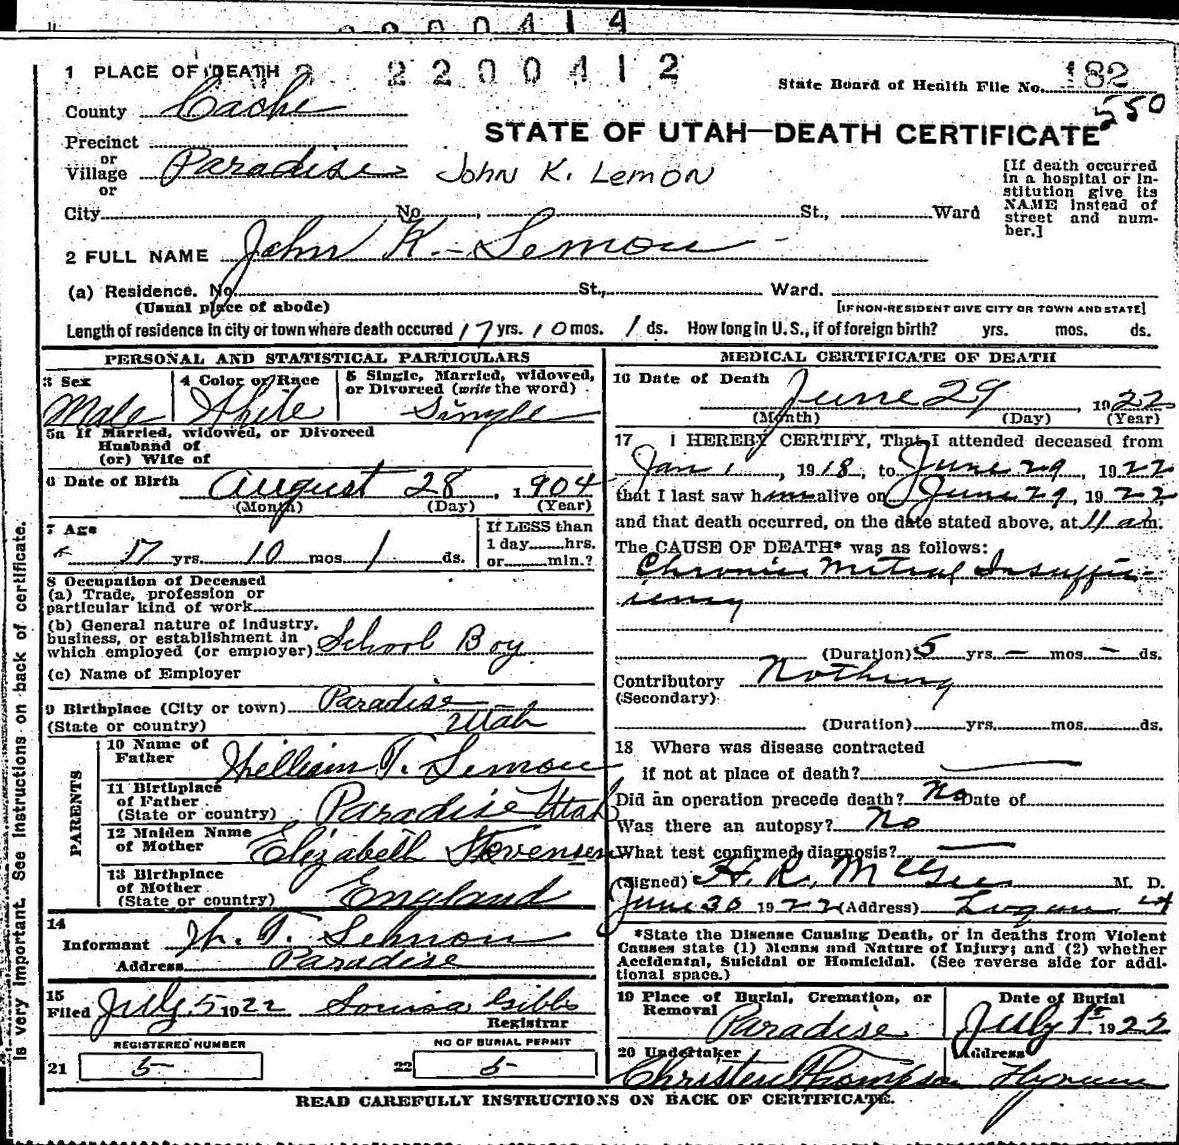 2200414
1 PLACE OF DEATH 2200412
State Board of Health File No. 182
550
County Cache
STATE OF UTAH—DEATH CERTIFICATE
Precinct
or
Village Paradise John K. Lemon
or
[If death occurred in a hospital or institution give its NAME instead of street and number.]
City No. St., Ward
2 FULL NAME John K. Lemon
(a) Residence. No. St., Ward.
(Usual place of abode) [IF NON-RESIDENT GIVE CITY OR TOWN AND STATE]
Length of residence in city or town where death occured 17 yrs. 10 mos. 1 ds. How long in U. S., if of foreign birth? yrs. mos. ds.
PERSONAL AND STATISTICAL PARTICULARS
3 Sex 4 Color or Race 5 Single, Married, widowed,
or Divorced (write the word)
Male White Single
5a If Married, widowed, or Divorced
Husband of
(or) Wife of
6 Date of Birth August 28, 1904
(Month) (Day) (Year)
7 Age If LESS than
17 yrs. 10 mos. 1 ds. 1 day hrs.
or min.?
8 Occupation of Deceased
(a) Trade, profession or
particular kind of work
(b) General nature of industry,
business, or establishment in
which employed (or employer) School Boy
(c) Name of Employer
9 Birthplace (City or town) Paradise
(State or country) Utah
PARENTS
10 Name of
Father William T. Lemon
11 Birthplace
of Father
(State or country) Paradise Utah
12 Maiden Name
of Mother Elizabeth Stevensen
13 Birthplace
of Mother
(State or country) England
14
Informant W. T. Lemon
Address Paradise
15
Filed July 5 1922 Louisa Gibbs
Registrar
REGISTERED NUMBER NO OF BURIAL PERMIT
21 5 22 5
MEDICAL CERTIFICATE OF DEATH
16 Date of Death June 29, 1922
(Month) (Day) (Year)
17 I HEREBY CERTIFY, That I attended deceased from
Jan 1, 1918, to June 29, 1922
that I last saw him alive on June 29, 1922,
and that death occurred, on the date stated above, at 11 am.
The CAUSE OF DEATH* was as follows:
Chronic Mitral Insuffici-
iency
(Duration) 5 yrs. – mos. – ds.
Contributory Nothing
(Secondary)
(Duration) yrs. mos. ds.
18 Where was disease contracted
if not at place of death?
Did an operation precede death? No Date of
Was there an autopsy? No
What test confirmed diagnosis?
(Signed) H. R. McGee M. D.
June 30 1922 (Address) Logan U
*State the Disease Causing Death, or in deaths from Violent
Causes state (1) Means and Nature of Injury; and (2) whether
Accidental, Suicidal or Homicidal. (See reverse side for addi-
tional space.)
19 Place of Burial, Cremation, or Date of Burial
Removal
Paradise July 1st 1922
20 Undertaker Address
Christen Thompson Hyrum
READ CAREFULLY INSTRUCTIONS ON BACK OF CERTIFICATE.
is very important. See instructions on back of certificate.